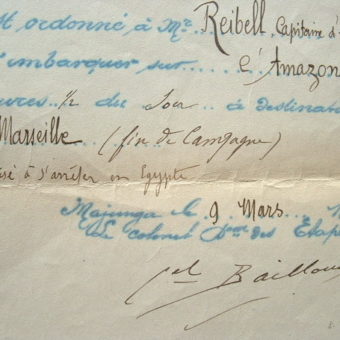 st ordonné à Mr. Reibell, Capitaine d'
'embarquer sur...... l'Amazon
ures 1/2 du Soir à destinat
Marseille (fin de Campagne)
isé à s'arrêter en Egypte
Majunga le 9 Mars
Le Colonel Dteur des Etap
Baillou